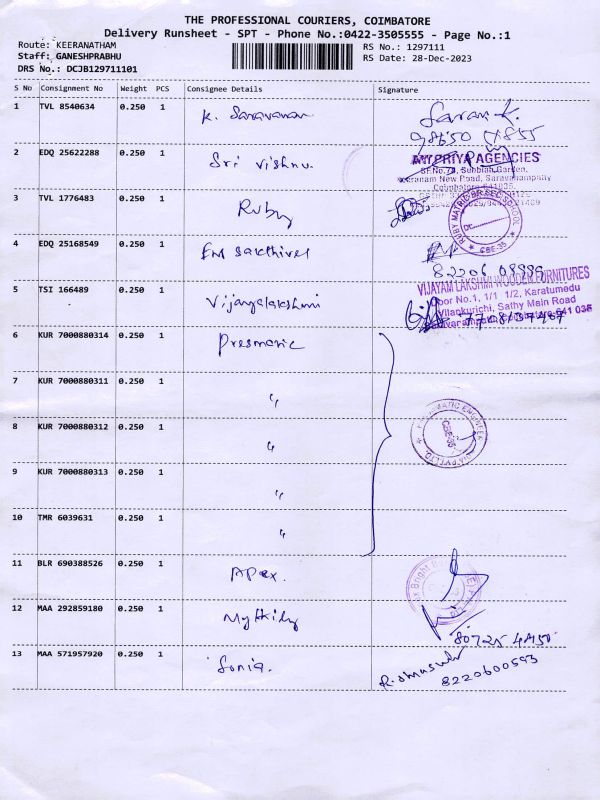 THE PROFESSIONAL COURIERS, COIMBATORE
Delivery Runsheet - SPT - Phone No.:0422-3505555 - Page No.:1
Route: KEERANATHAM RS No.: 1297111
Staff: GANESHPRABHU RS Date: 28-Dec-2023
DRS No.: DCJB129711101
S No Consignment No Weight PCS Consignee Details Signature
1 TVL 8540634 0.250 1 K. Saravanan Saran.K.
98650
2 EDQ 25622288 0.250 1 Sri Vishnu. PRIYA AGENCIES
SF.No. Subbiah Garden,
Keeranam New Road, Saravanampatty
Coimbatore 641035.
3 TVL 1776483 0.250 1 Ruby RUBY MATRIC HR SEC SCHOOL
CBE-35
4 EDQ 25168549 0.250 1 Em Sakthivel
82206
5 TSI 166489 0.250 1 Vijayalakshmi VIJAYAM LAKSHMI WOODEN FURNITURES
Door No.1, 1/1 1/2, Karatumedu
Vilankurichi, Sathy Main Road
Coimbatore-641 035
6 KUR 7000880314 0.250 1 Presmatic
7 KUR 7000880311 0.250 1 "
8 KUR 7000880312 0.250 1 " CBE-35
9 KUR 7000880313 0.250 1 "
10 TMR 6039631 0.250 1 "
11 BLR 690388526 0.250 1 Apex. Bright
12 MAA 292859180 0.250 1
80725
13 MAA 571957920 0.250 1 Sonia.
8220600593